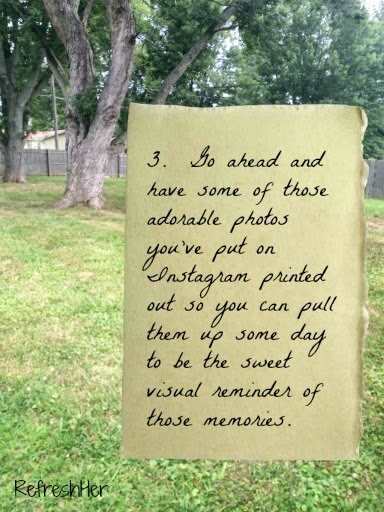 3. Go ahead and
have some of those
adorable photos
you've put on
Instagram printed
out so you can pull
them up some day
to be the sweet
visual reminder of
those memories.
RefreshHer